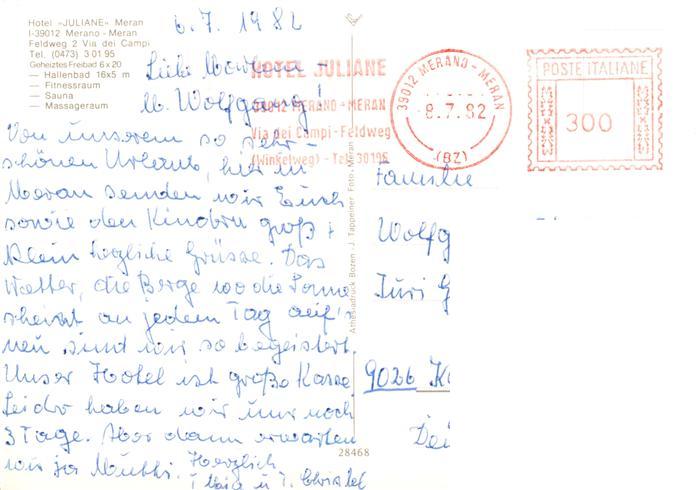 Hotel »JULIANE« Meran
I-39012 Merano - Meran
Feldweg 2 Via dei Campi
Tel. (0473) 3 01 95
Geheiztes Freibad 6 x 20
— Hallenbad 16x5 m
— Fitnessraum
— Sauna
— Massageraum
6.7. 1982
Liebe
u. Wolfgang!
Von unserem so sehr
schönen Urlaub, hier in
Meran senden wir Euch
sowie den Kindern groß +
Klein herzliche Grüsse. Das
Wetter, die Berge wo die Sonne
scheint an jedem Tag auf's
neu, sind wir so begeistert.
Unser Hotel ist große Kasse
Leider haben wir nur noch
3 Tage. Aber dann erwarten
wir ja Mutti. Herzlich
u. T. Christel
HOTEL JULIANE
39012 MERANO - MERAN
Via dei Campi - Feldweg
(Winkelweg) - Tel. 30195
39012 MERANO - MERAN
8.7.82
(BZ)
POSTE ITALIANE
300
Familie
Wolfg
Juri G
9026 K
Athesiadruck Bozen · J. Tappeiner Foto, Meran
28468